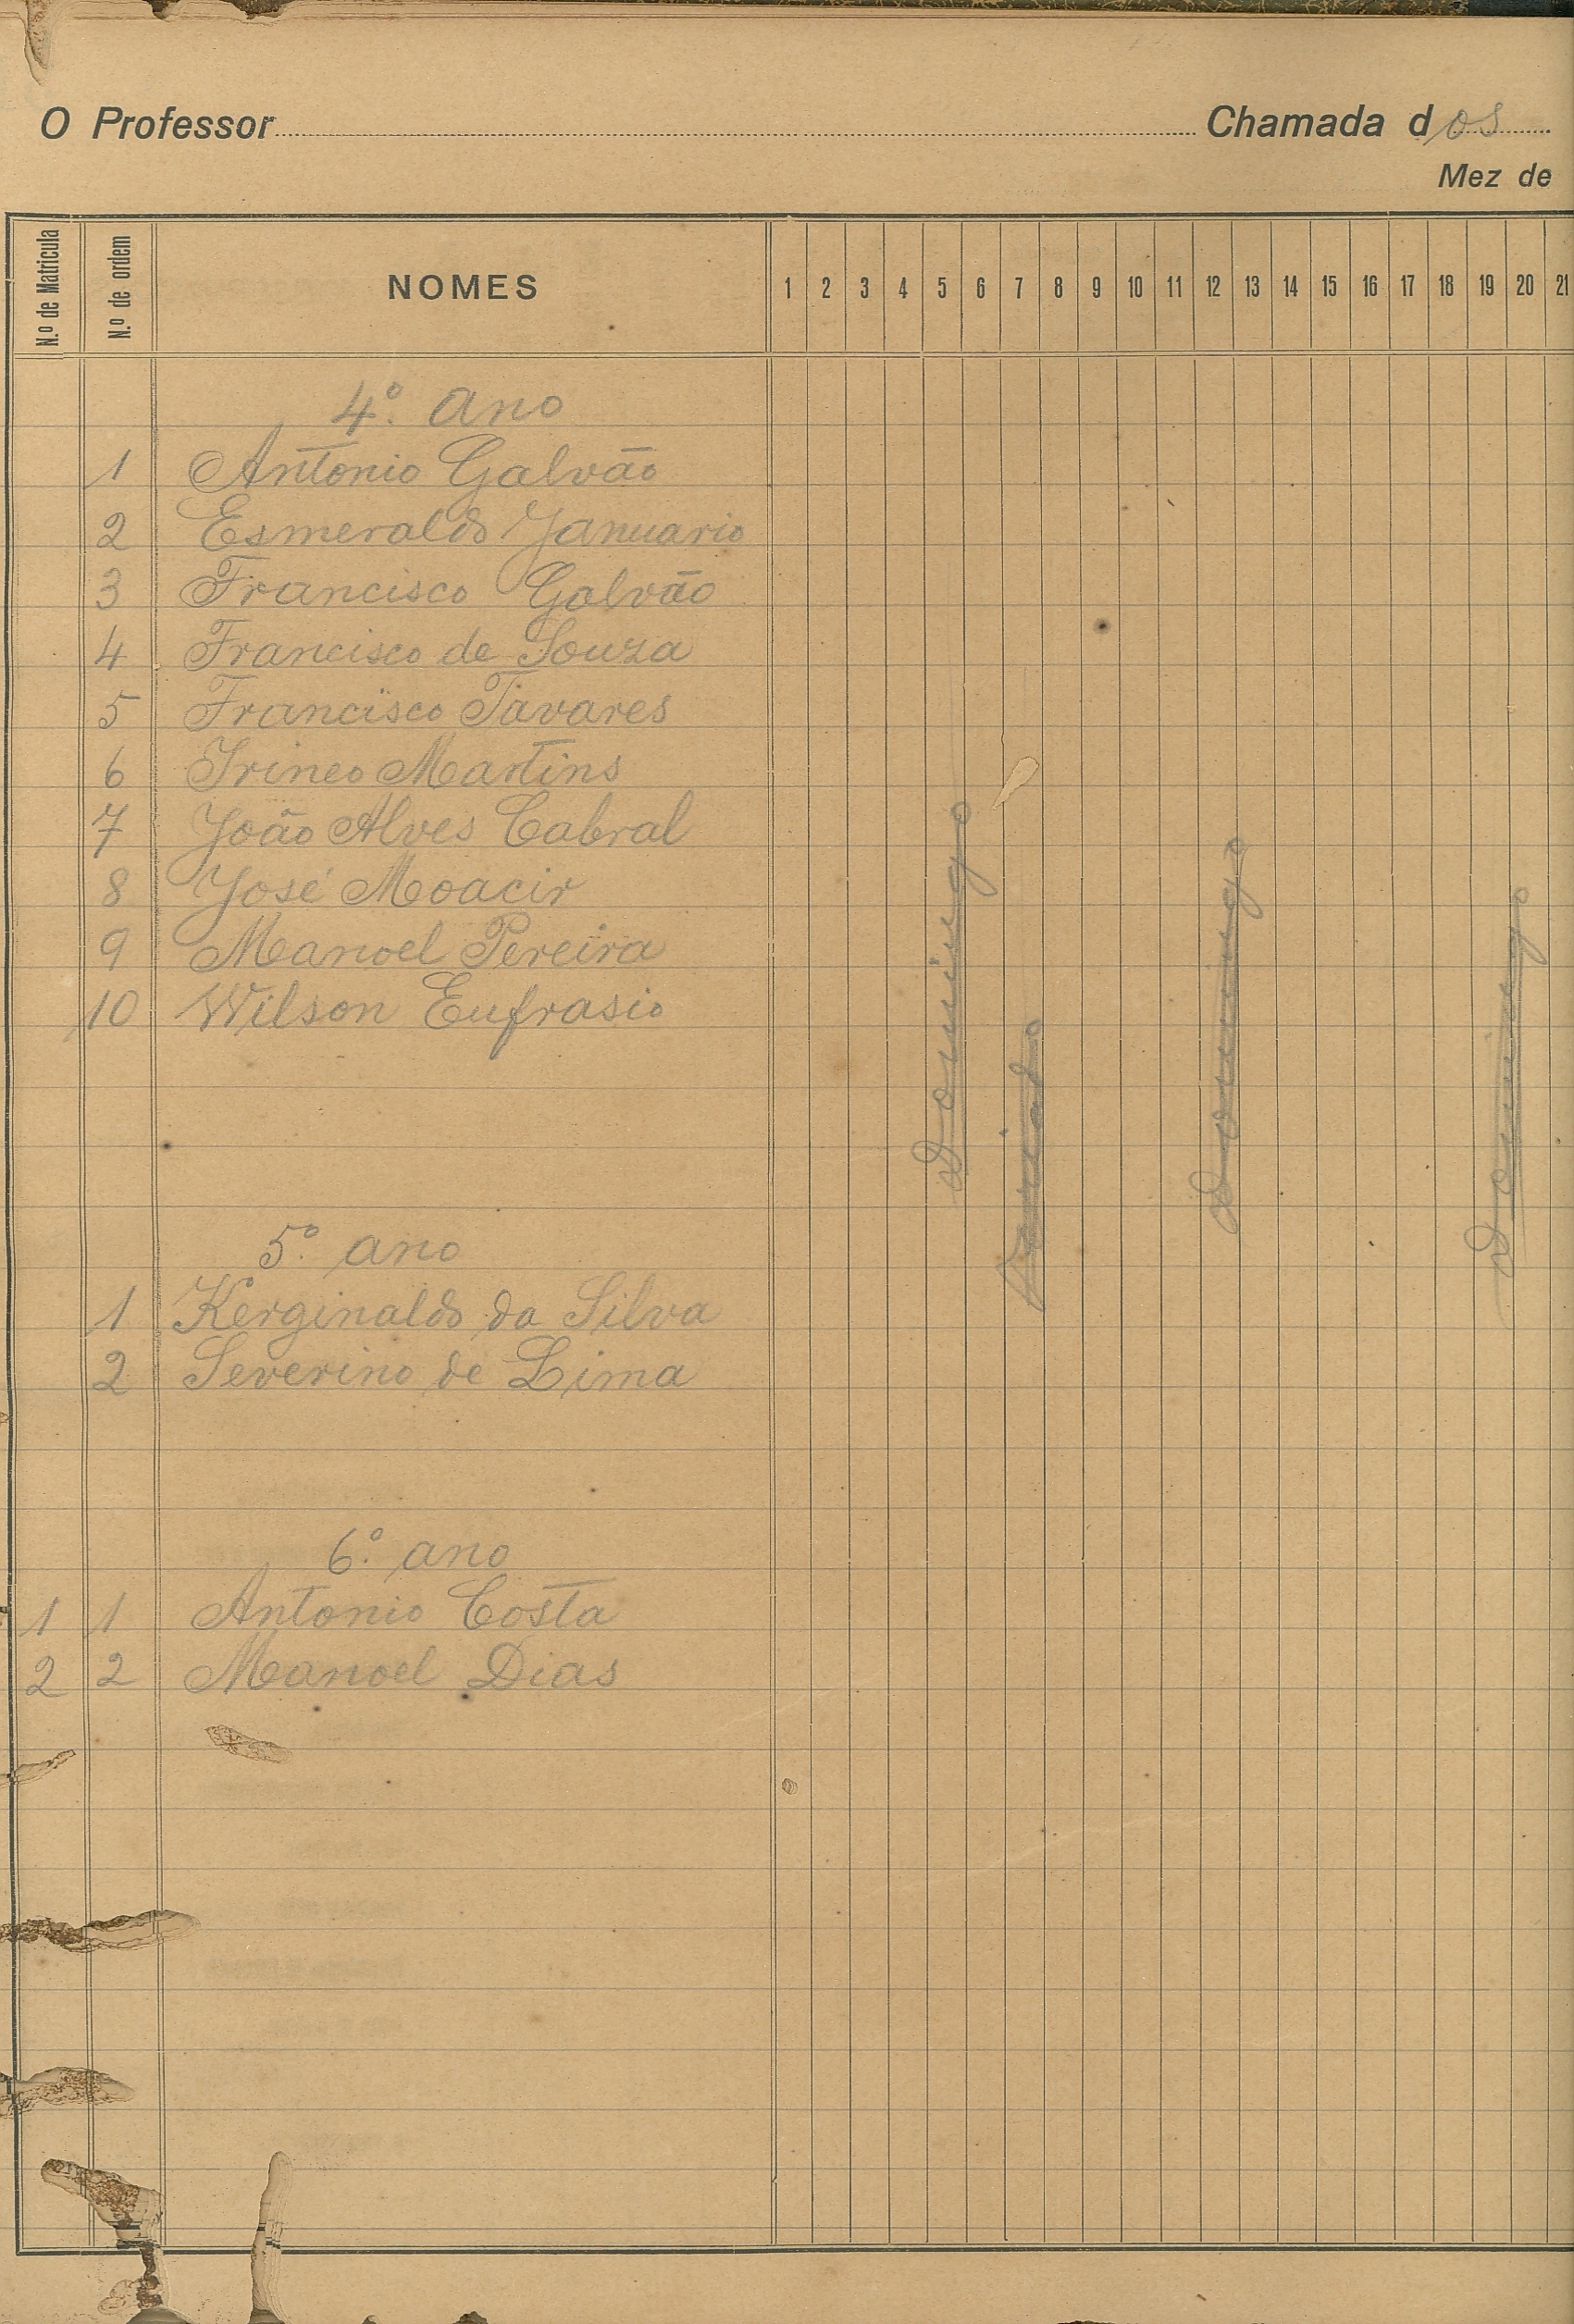 O Professor Chamada dos
Mez de
N.º de Matricula N.º de ordem NOMES 1 2 3 4 5 6 7 8 9 10 11 12 13 14 15 16 17 18 19 20 21
4º. ano
1 Antonio Galvão
2 Esmeraldo Januario
3 Francisco Galvão
4 Francisco de Souza
5 Francisco Tavares
6 Irineo Martins
7 João Alves Cabral
8 José Moacir
9 Manoel Pereira
10 Wilson Eufrasio
Domingo
Feriado
Domingo
Domingo
5º. ano
1 Kerginaldo da Silva
2 Severino de Lima
6º. ano
1 1 Antonio Costa
2 2 Manoel Dias